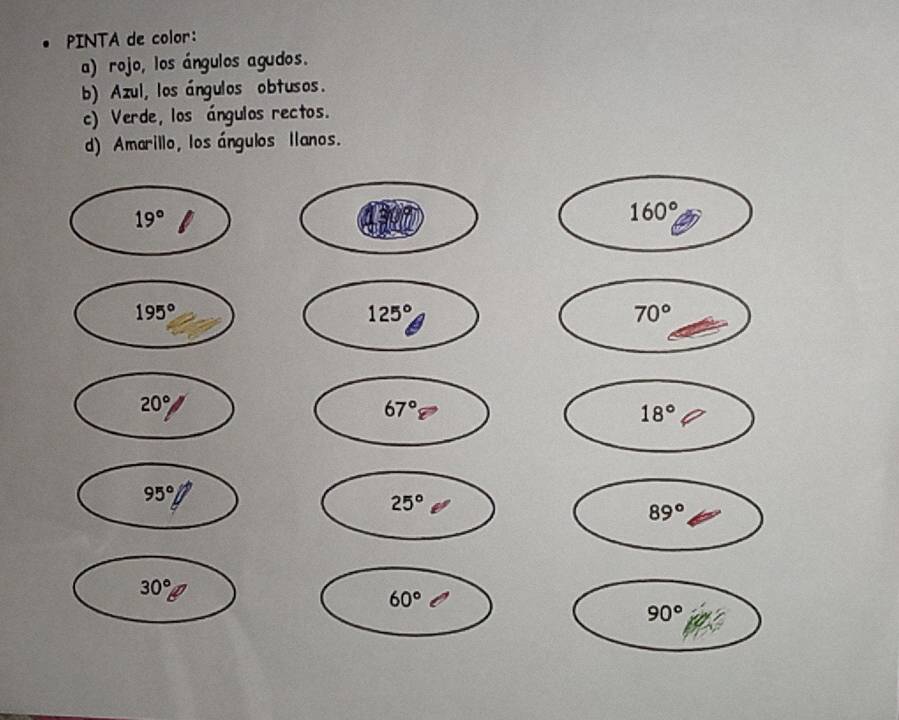 • PINTA de color:
a) rojo, los ángulos agudos.
b) Azul, los ángulos obtusos.
c) Verde, los ángulos rectos.
d) Amarillo, los ángulos llanos.
19° 160°
195° 125° 70°
20° 67° 18°
95° 25° 89°
30° 60° 90°